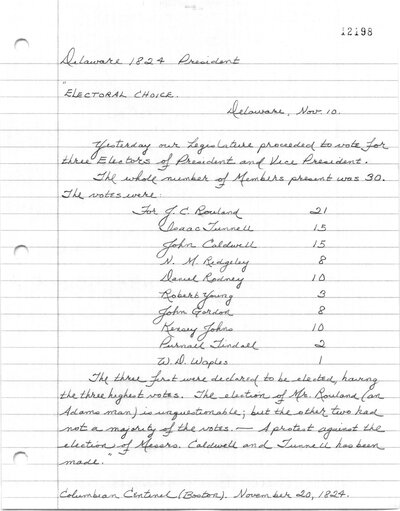 12198
Delaware 1824 President
"
ELECTORAL CHOICE.
Delaware, Nov. 10.
Yesterday our Legislature proceeded to vote for
three Electors of President and Vice President.
The whole number of Members present was 30.
The votes were:
For J. C. Rowland 21
Isaac Tunnell 15
John Caldwell 15
N. M. Ridgeley 8
Daniel Rodney 10
Robert Young 3
John Gordon 8
Kensey Johns 10
Purnall Tindall 2
W. D. Waples 1
The three first were declared to be elected, having
the three highest votes. The election of Mr. Rowland (an
Adams man) is unquestionable; but the other two had
not a majority of the votes. — A protest against the
election of Messrs. Caldwell and Tunnell has been
made."
Columbian Centinel (Boston). November 20, 1824.